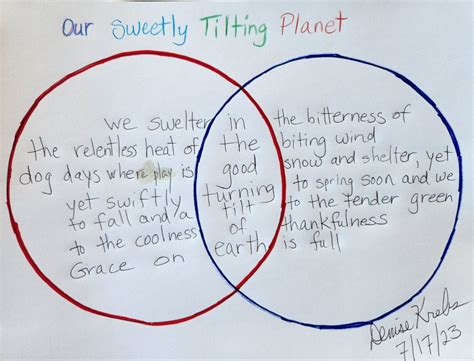 Our Sweetly Tilting Planet
we swelter in the bitterness of
the relentless heat of the biting wind
dog days where play is good snow and shelter, yet
yet swiftly turning to spring soon and we
to fall and a tilt to the tender green
to the coolness of thankfulness
Grace on earth is full
Denise Krebs
7/17/23